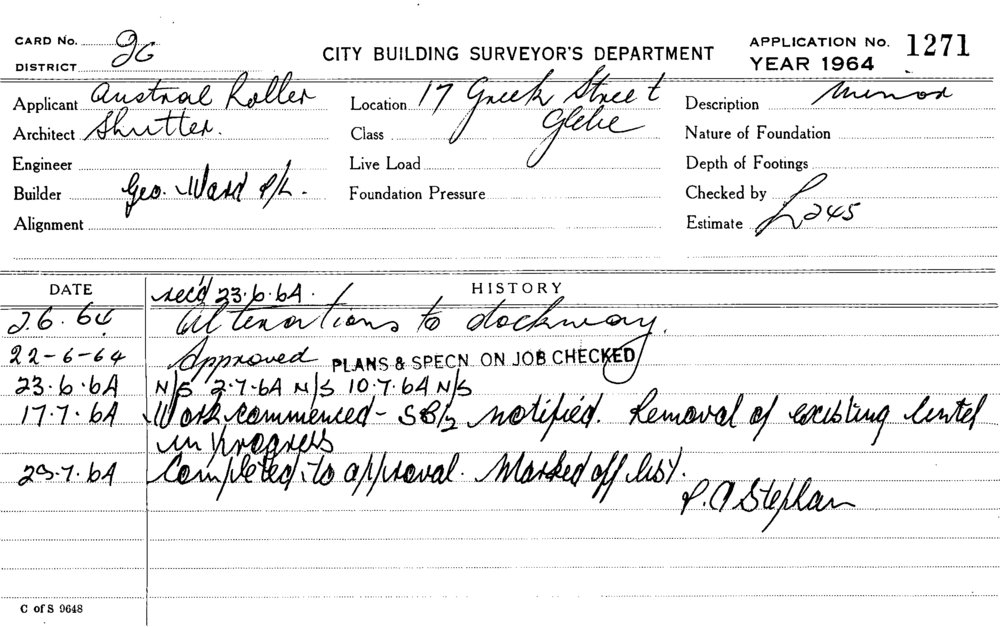 CARD No. 9G
CITY BUILDING SURVEYOR'S DEPARTMENT
APPLICATION No. 1271
DISTRICT
YEAR 1964
Applicant Austral Roller
Location 17 Greek Street
Description Minor
Architect Shutter.
Class Glebe
Nature of Foundation
Engineer
Live Load
Depth of Footings
Builder Geo. Ward P/L.
Foundation Pressure
Checked by
Alignment
Estimate £245
DATE
HISTORY
rec'd 23.6.64.
2.6.64 Alterations to dockway.
22-6-64 Approved PLANS & SPECN. ON JOB CHECKED
23.6.64 N/S 2.7.64 N/S 10.7.64 N/S
17.7.64 Work commenced - notified. Removal of existing lintel
in progress
29.7.64 Completed to approval. Marked off list.
P. A Stephan
C of S 9648